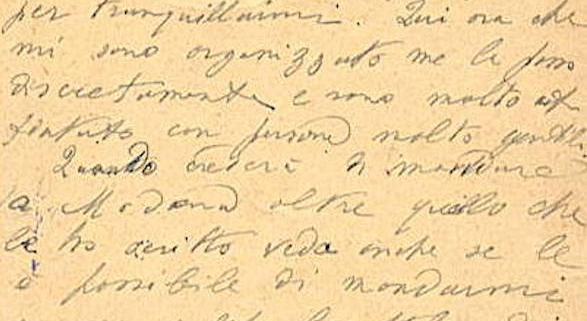 per tranquillarmi. Qui ora che
mi sono organizzato me la passo
discretamente e sono molto
con persone molto gentili
Quando crederà di mandare
a Modena oltre quello che
le ho scritto veda anche se le
è possibile di mandarmi